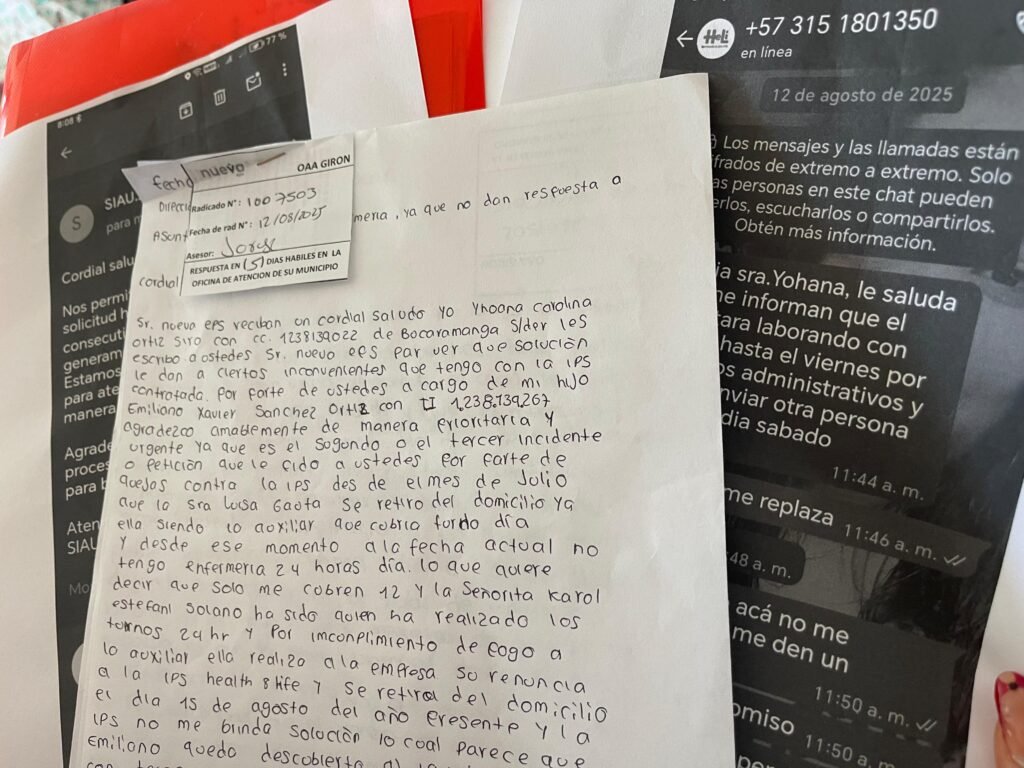 8:08
77 %
SIAU
para m
Cordial salu
Nos permi
solicitud h
consecuti
generam
Estamos
para ate
manera
Agrade
proces
para b
Aten
SIAU
Mo
fecha nuevo
OAA GIRON
Radicado N°: 1007503
Fecha de rad N°: 12/08/2025
Asesor: Jorge
RESPUESTA EN (5) DIAS HABILES EN LA
OFICINA DE ATENCION DE SU MUNICIPIO
Direcci
Asunt
meria, ya que no dan respuesta a
cordial
Sr. nueva eps reciban un cordial saludo yo Yhoana carolina
ortiz Siro con cc. 1238139022 de Bocaramanga S/der les
escribo a ustedes Sr. nuevo eps par ver que solución
le dan a ciertos inconvenientes que tengo con la IPS
contratada. Por parte de ustedes a cargo de mi hijo
Emiliano Xavier Sanchez Ortiz con TI 1.238.139.267
agradezco amablemente de manera prioritaria y
urgente ya que es el segundo o el tercer incidente
o petición que le pido a ustedes por parte de
quejas contra la ips des de el mes de Julio
que la sra Luisa Gaota se retiro del domicilio ya
ella siendo la auxiliar que cobria turdo día
y desde ese momento a la fecha actual no
tengo enfermeria 24 horas día. lo que quiere
decir que solo me cobren 12 y la Señorita Karol
estefani solano ha sido quien ha realizado los
tornos 24 hr y por imconplimiento de pogo a
la auxiliar ella realiza a la empresa su renuncia
a la IPS health & life y se retira del domicilio
el día 15 de agosto del año presente y la
IPS no me brinda solución lo coal parece que
Emiliano queda descobierto al
+57 315 1801350
HeLi
en línea
12 de agosto de 2025
Los mensajes y las llamadas están
frados de extremo a extremo. Solo
as personas en este chat pueden
erlos, escucharlos o compartirlos.
Obtén más información.
ia sra.Yohana, le saluda
ne informan que el
tara laborando con
hasta el viernes por
os administrativos y
nviar otra persona
dia sabado
11:44 a. m.
me replaza 11:46 a. m.
:48 a. m.
acá no me
me den un
11:50 a. m.
omiso 11:50 a. m.